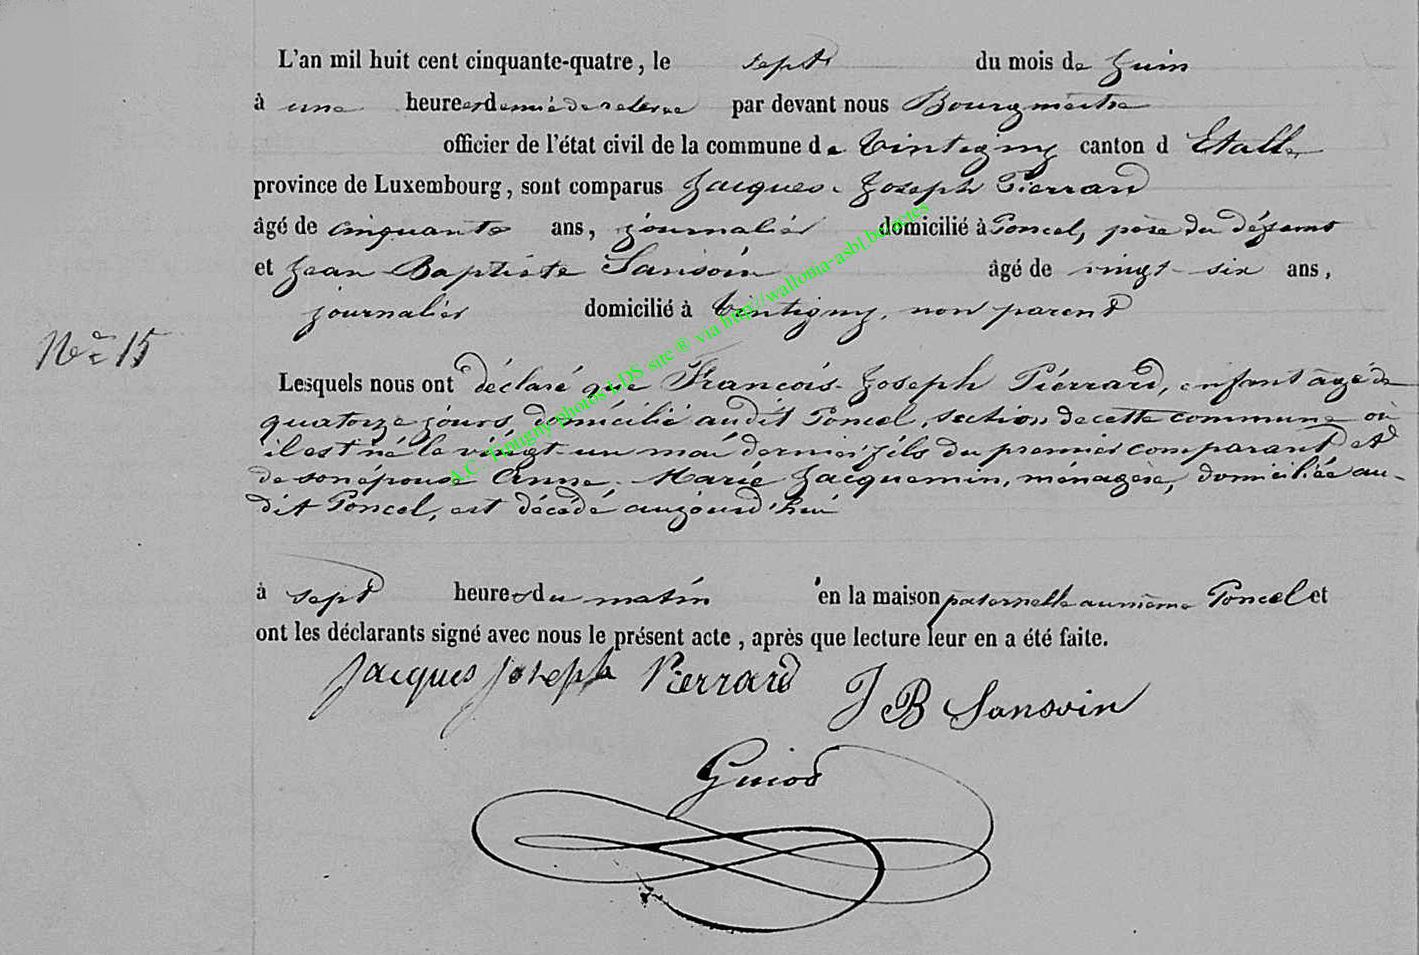 L'an mil huit cent cinquante-quatre, le sept du mois de Juin
à une heure et demie de relevée par devant nous Bourgmestre
officier de l'état civil de la commune de Tintigny canton d Etalle
province de Luxembourg, sont comparus Jacques-Joseph Pierrard
âgé de cinquante ans, journalier domicilié à Poncel, père du défunt
et Jean-Baptiste Sansoin âgé de vingt-six ans,
journalier domicilié à Tintigny, non parent
Nº 15
Lesquels nous ont déclaré que François-Joseph Piérrard, enfant âgé de
quatorze jours, domicilié audit Poncel, section de cette commune où
il est né le vingt-un mai dernier fils du premier comparant et
de son épouse Anne-Marie Jacquemin, ménagère, domiciliée au-
dit Poncel, est décédé aujourd'hui
à sept heures du matin en la maison paternelle au même Poncel et
ont les déclarants signé avec nous le présent acte, après que lecture leur en a été faite.
Jacques Joseph Pierrard J B Sansoin
Guiod
A.C. Tintigny photos LDS site ® via http://wallonia-asbl.be/actes